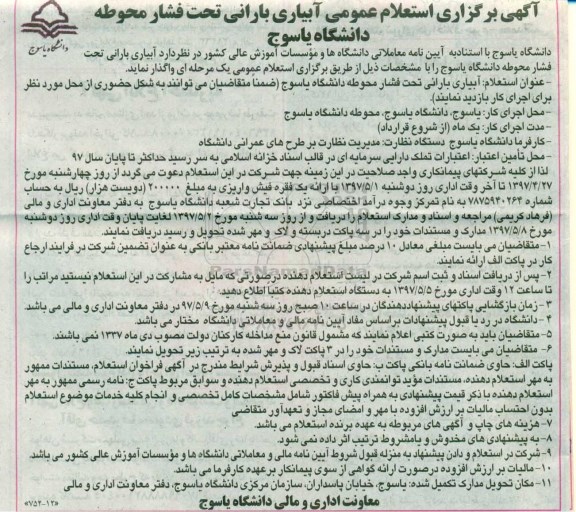 آگهی برگزاری استعلام عمومی آبیاری بارانی تحت فشار محوطه
دانشگاه یاسوج
دانشگاه یاسوج
دانشگاه یاسوج با استنادبه آیین نامه معاملاتی دانشگاه ها و مؤسسات آموزش عالی کشور در نظر دارد آبیاری بارانی تحت
فشار محوطه دانشگاه یاسوج را با مشخصات ذیل از طریق برگزاری استعلام عمومی یک مرحله ای واگذار نماید.
-عنوان استعلام: آبیاری بارانی تحت فشار محوطه دانشگاه یاسوج (ضمنا متقاضیان می توانند به شکل حضوری از محل مورد نظر
برای اجرای کار بازدید نمایند).
-محل اجرای کار: یاسوج، دانشگاه یاسوج، محوطه دانشگاه یاسوج
-مدت اجرای کار: یک ماه (از شروع قرارداد)
-کارفرما دانشگاه یاسوج دستگاه نظارت: مدیریت نظارت بر طرح های عمرانی دانشگاه
-محل تأمین اعتبار: اعتبارات تملک دارایی سرمایه ای در قالب اسناد خزانه اسلامی به سر رسید حداکثر تا پایان سال ۹۷
لذا از کلیه شرکتهای پیمانکاری واجد صلاحیت در این زمینه جهت شرکت در این استعلام دعوت می گردد از روز چهارشنبه مورخ
۱۳۹۷/۴/۲۷ تا آخر وقت اداری روز دوشنبه ۱۳۹۷/۵/۱ با ارائه یک فقره فیش واریزی به مبلغ ۲۰۰۰۰۰ (دویست هزار) ریال به حساب
شماره ۷۸۷۵۹۴۰۲۶۴ به نام تمرکز وجوه درآمد اختصاصی نزد بانک تجارت شعبه دانشگاه یاسوج به دفتر معاونت اداری و مالی
(فرهاد کریمی) مراجعه و اسناد و مدارک استعلام را دریافت و از روز سه شنبه مورخ ۱۳۹۷/۵/۲ لغایت پایان وقت اداری روز دوشنبه
مورخ ۱۳۹۷/۵/۸ مدارک و مستندات خود را در سه پاکت دربسته و لاک و مهر شده تحویل و رسید دریافت نمایند.
۱- متقاضیان می بایست مبلغی معادل ۱۰ درصد مبلغ پیشنهادی ضمانت نامه معتبر بانکی به عنوان تضمین شرکت در فرایند ارجاع
کار در پاکت الف ارائه نمایند.
۲- پس از دریافت اسناد و ثبت اسم شرکت در لیست استعلام دهنده درصورتی که مایل به مشارکت در این استعلام نیستید مراتب را
تا ساعت ۱۲ وقت اداری مورخ ۱۳۹۷/۵/۵ به دستگاه استعلام دهنده کتبا اطلاع دهید.
۳- زمان بازگشایی پاکتهای پیشنهاددهندگان در ساعت ۱۰ صبح روز سه شنبه مورخ ۹۷/۵/۹ در دفتر معاونت اداری و مالی می باشد.
۴- دانشگاه در رد یا قبول پیشنهادات بر اساس مفاد آیین نامه مالی و معاملاتی دانشگاه مختار می باشد.
۵- متقاضیان باید به صورت کتبی اعلام نمایند که مشمول قانون منع مداخله کارکنان دولت مصوب دی ماه ۱۳۳۷ نمی باشند.
۶- متقاضیان می بایست مدارک و مستندات خود را در ۳ پاکت لاک و مهر شده به ترتیب زیر تحویل نمایند.
پاکت الف: حاوی ضمانت نامه بانکی پاکت ب: حاوی اسناد قبول و پذیرش شرایط مندرج در آگهی فراخوان استعلام، مستندات ممهور
به مهر استعلام دهنده، مستندات مؤید توانمندی کاری و تخصصی استعلام دهنده و سوابق مربوط پاکت ج: نامه رسمی ممهور به مهر
استعلام دهنده با ذکر قیمت پیشنهادی به همراه پیش فاکتور شامل مشخصات کامل تخصصی و انجام کلیه خدمات موضوع استعلام
بدون احتساب مالیات بر ارزش افزوده با مهر و امضای مجاز و تعهدآور متقاضی
۷- هزینه های چاپ و آگهی های مربوطه به عهده برنده استعلام می باشد.
۸- به پیشنهادهای مخدوش و یامشروط ترتیب اثر داده نمی شود.
۹- شرکت در استعلام و دادن پیشنهاد به منزله قبول شروط آیین نامه مالی و معاملاتی دانشگاه ها و مؤسسات آموزش عالی کشور می باشد.
۱۰- مالیات بر ارزش افزوده درصورت ارائه گواهی از سوی پیمانکار بر عهده کارفرما می باشد.
۱۱- مکان تحویل مدارک تکمیل شده: یاسوج، خیابان پاسداران، سازمان مرکزی دانشگاه یاسوج، دفتر معاونت اداری و مالی
معاونت اداری و مالی دانشگاه یاسوج
«۷۵۲-۱۲»